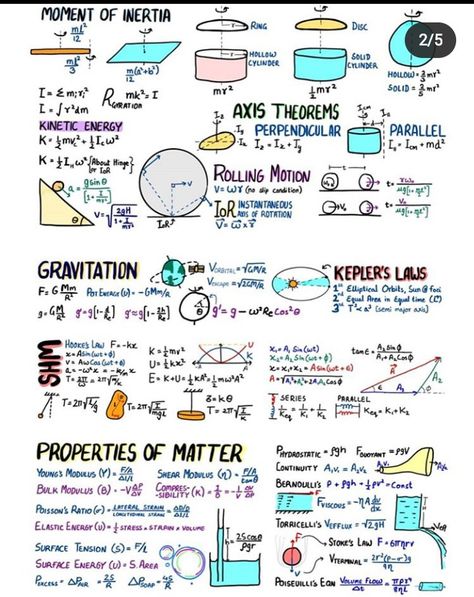 MOMENT OF INERTIA
ml²/12
ml²/3
m(a²+b²)/12
RING
HOLLOW CYLINDER
mr²
DISC
SOLID CYLINDER
½mr²
2/5
HOLLOW = ⅔mr²
SOLID = ⅖mr²
I = Σmᵢrᵢ²
I = ∫r²dm
RGYRATION mk² = I
KINETIC ENERGY
K = ½mv² + ½Iω²
K = ½Iω² (About Hinge) or IOR
a = gsinθ
V = √
AXIS THEOREMS
PERPENDICULAR
Iz = Ix + Iy
PARALLEL
I = Icm + md²
ROLLING MOTION
V = ωr (no slip condition)
IOR INSTANTANEOUS AXIS OF ROTATION
V = ω × r
IOR
GRAVITATION
F = G Mm/R²
POT ENERGY (U) = -GMm/R
VORBITAL = √GM/R
VESCAPE = √2GM/R
g = GM/R²
g' = g[1 - d/R]
g' ≈ g[1 - 2h/R]
g' = g - ω²Re cos²θ
KEPLER'S LAWS
1st Elliptical Orbits, Sun @ foci
2nd Equal Area in Equal time
3rd T² ∝ a³ (semi major axis)
SHM
HOOKE'S LAW F = -kx
x = A sin(ωt + ϕ)
V = Aω cos(ωt + ϕ)
a = -ω²x = -k/m x
T = 2π/ω = 2π√m/k
K = ½mv²
U = ½kx²
E = K + U = ½kA² = ½mω²A²
T = 2π√l/g
T = 2π√I/mgl
T = 2π√I/k
x₁ = A₁ sin ωt
x₂ = A₂ sin(ωt + ϕ)
x = x₁ + x₂ = A sin(ωt + α)
A = √A₁² + A₂² + 2A₁A₂ cosϕ
tan ε = A₂ sinϕ / A₁ + A₂ cosϕ
SERIES
1/keq = 1/k₁ + 1/k₂
PARALLEL
Keq = K₁ + K₂
PROPERTIES OF MATTER
YOUNG'S MODULUS (Y) = F/A / Δl/l
SHEAR MODULUS (η) = F/A / tanθ
BULK MODULUS (B) = -V ΔP/ΔV
COMPRESSIBILITY (K) = 1/B = -1/V ΔV/ΔP
POISSON'S RATIO (σ) = LATERAL STRAIN / LONGITUDINAL STRAIN = ΔD/D / Δl/l
ELASTIC ENERGY (U) = ½ STRESS × STRAIN × VOLUME
SURFACE TENSION (S) = F/L
SURFACE ENERGY (U) = S.AREA
PEXCESS = ΔPAIR = 2S/R
ΔPSOAP = 4S/R
h = 2S cosθ / ρgr
PHYDROSTATIC = ρgh
FBUOYANT = ρgV
CONTINUITY A₁V₁ = A₂V₂
BERNOULLI'S P + ρgh + ½ρv² = Const
FVISCOUS = -ηA dv/dx
TORRICELLI'S VEFFLUX = √2gH
STOKE'S LAW F = 6πηrv
VTERMINAL = 2r²(ρ-σ)g / 9η
POISEUILLI'S EQN VOLUME FLOW / Δt = πpr⁴ / 8ηL